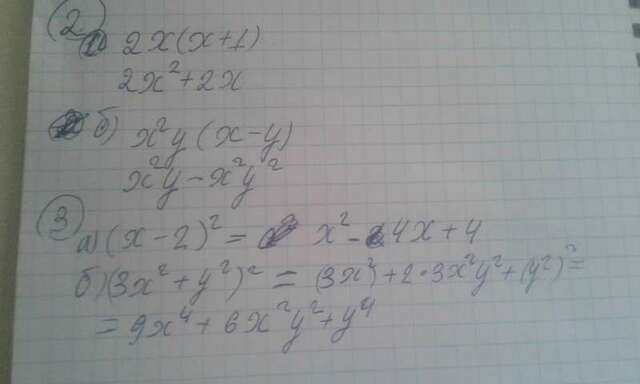 ② а) 2x(x+1)
2x²+2x
б) x²y(x-y)
x³y-x²y²
③
а) (x-2)² = x²-4x+4
б) (3x²+y²)² = (3x²)²+2·3x²y²+(y²)²=
= 9x⁴+6x²y²+y⁴